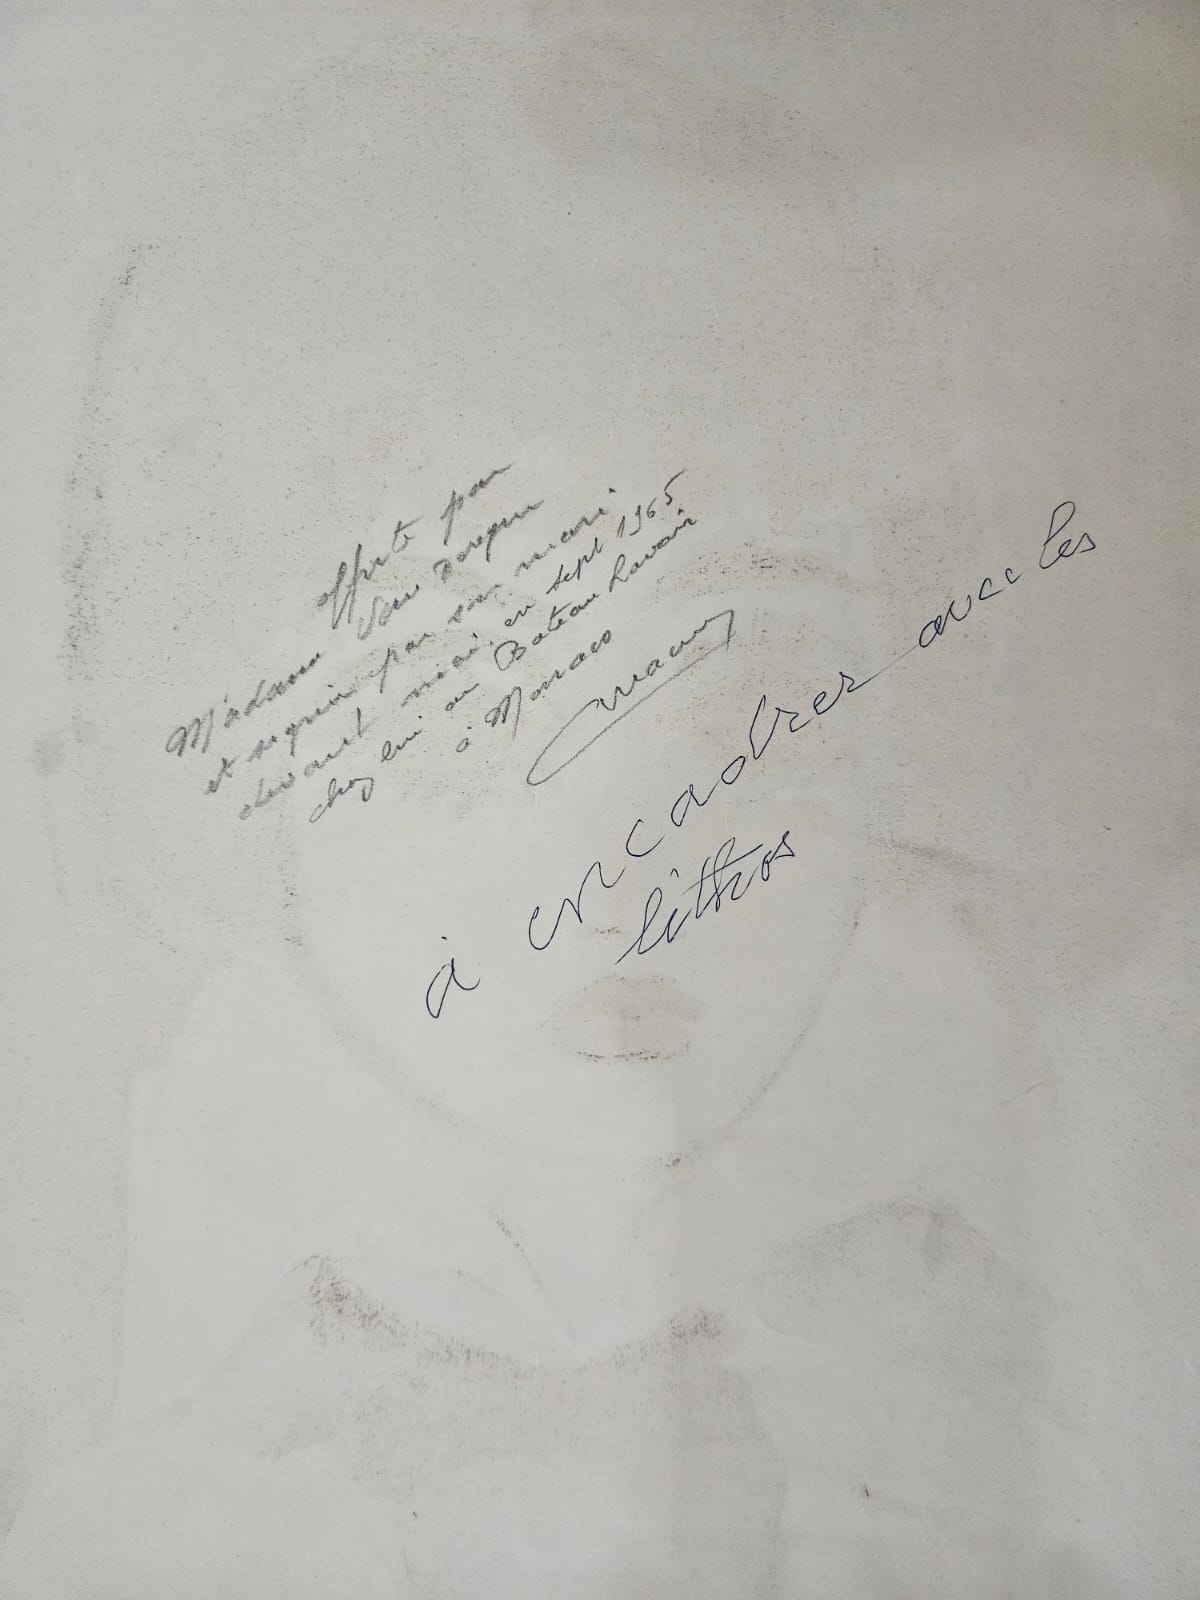 offerte par
Madame Van Dongen
et signée par son mari
devant moi, en sept 1965
chez lui au Bateau Lavoir
à Monaco
à encadrer avec les
lithos